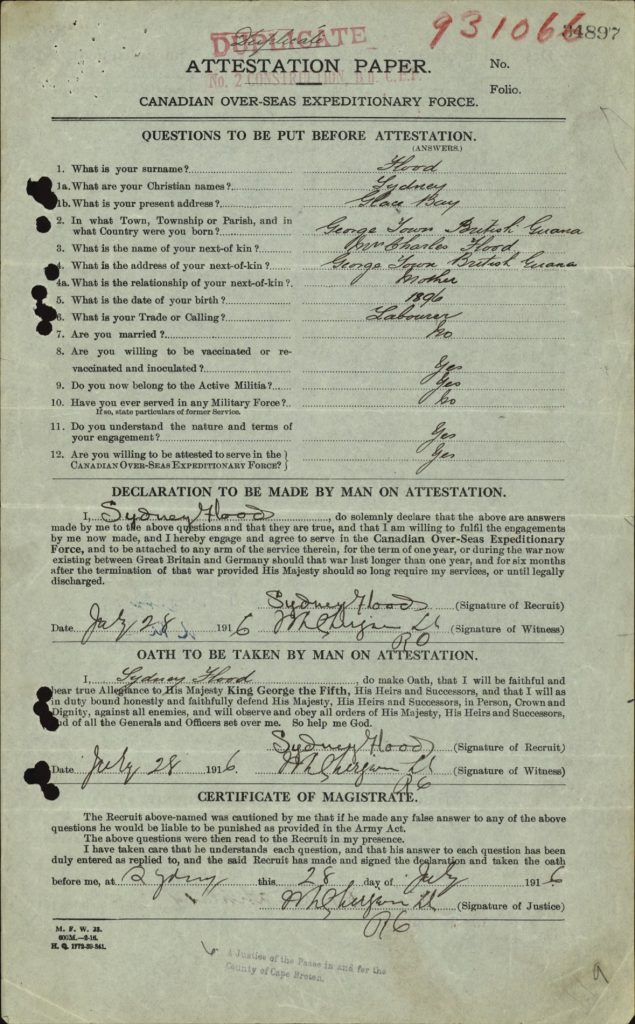 Duplicate
DUPLICATE
931066
34897
ATTESTATION PAPER.
No.
No. 2 CONSTRUCTION, B'N. C.E.F.
Folio.
CANADIAN OVER-SEAS EXPEDITIONARY FORCE.
QUESTIONS TO BE PUT BEFORE ATTESTATION.
(ANSWERS.)
1. What is your surname? Flood
1a. What are your Christian names? Sydney
1b. What is your present address? Glace Bay
2. In what Town, Township or Parish, and in
what Country were you born? George Town British Guana
3. What is the name of your next-of kin? Charles Flood
4. What is the address of your next-of-kin? George Town British Guana
4a. What is the relationship of your next-of-kin? Mother
5. What is the date of your birth? 1896
6. What is your Trade or Calling? Labourer
7. Are you married? No
8. Are you willing to be vaccinated or re-
vaccinated and inoculated? Yes
9. Do you now belong to the Active Militia? Yes
10. Have you ever served in any Military Force? No
If so, state particulars of former Service.
11. Do you understand the nature and terms of
your engagement? Yes
12. Are you willing to be attested to serve in the
CANADIAN OVER-SEAS EXPEDITIONARY FORCE? Yes
DECLARATION TO BE MADE BY MAN ON ATTESTATION.
I, Sydney Flood, do solemnly declare that the above are answers
made by me to the above questions and that they are true, and that I am willing to fulfil the engagements
by me now made, and I hereby engage and agree to serve in the Canadian Over-Seas Expeditionary
Force, and to be attached to any arm of the service therein, for the term of one year, or during the war now
existing between Great Britain and Germany should that war last longer than one year, and for six months
after the termination of that war provided His Majesty should so long require my services, or until legally
discharged.
Sydney Flood (Signature of Recruit)
Date July 28 1916 (Signature of Witness)
OATH TO BE TAKEN BY MAN ON ATTESTATION.
I, Sydney Flood, do make Oath, that I will be faithful and
bear true Allegiance to His Majesty King George the Fifth, His Heirs and Successors, and that I will as
in duty bound honestly and faithfully defend His Majesty, His Heirs and Successors, in Person, Crown and
Dignity, against all enemies, and will observe and obey all orders of His Majesty, His Heirs and Successors,
and of all the Generals and Officers set over me. So help me God.
Sydney Flood (Signature of Recruit)
Date July 28 1916 (Signature of Witness)
CERTIFICATE OF MAGISTRATE.
The Recruit above-named was cautioned by me that if he made any false answer to any of the above
questions he would be liable to be punished as provided in the Army Act.
The above questions were then read to the Recruit in my presence.
I have taken care that he understands each question, and that his answer to each question has been
duly entered as replied to, and the said Recruit has made and signed the declaration and taken the oath
before me, at Sydney this 28 day of July 1916
(Signature of Justice)
M. F. W. 23.
600M.—2-16.
H. Q. 1772-39-841.
A Justice of the Peace in and for the
County of Cape Breton.